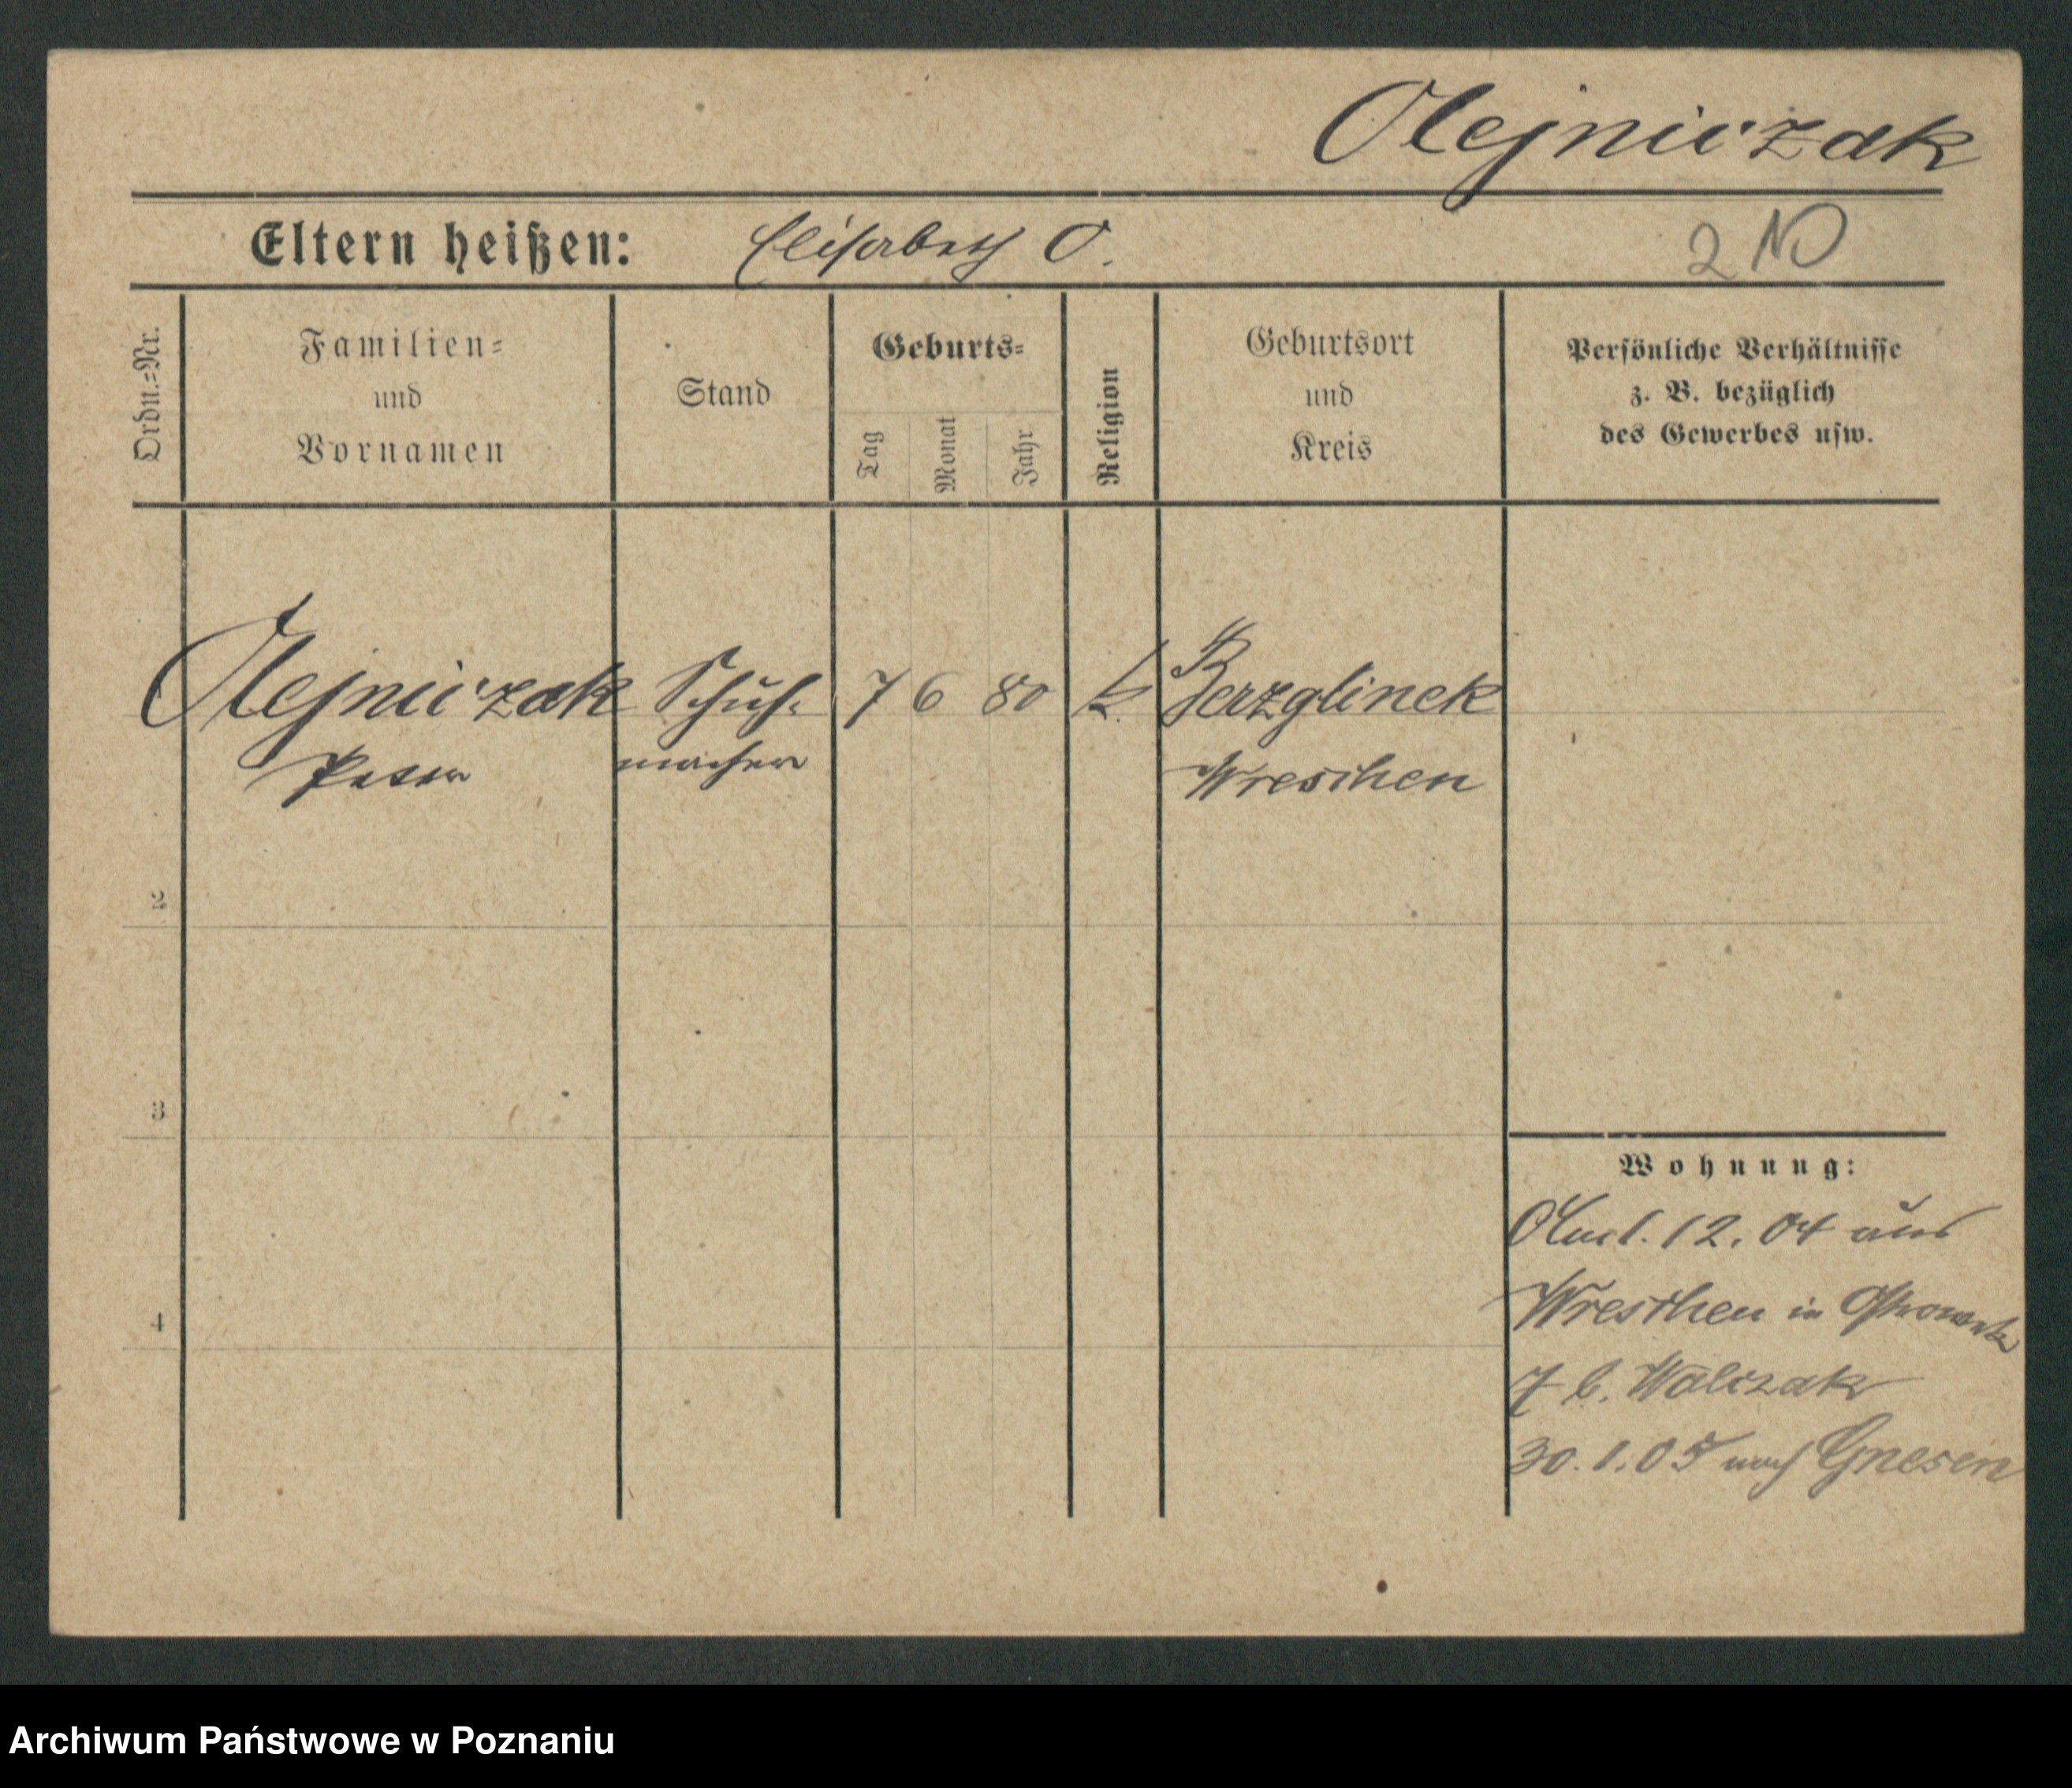 Olejniczak
Eltern heißen: Elisabeth O.
Ordn.=Nr.
Familien=
und
Vornamen
Stand
Geburts=
Tag
Monat
Jahr
Religion
Geburtsort
und
Kreis
Persönliche Verhältnisse
z. B. bezüglich
des Gewerbes usw.
Olejniczak Schuh- 7 6 80 k. Berzglinek
Peter macher Wreschen
2
3
4
Wohnung:
12. 04 aus
Wreschen in
7 b. Walczak
30. 1. 05 nach Gnesen
Archiwum Państwowe w Poznaniu